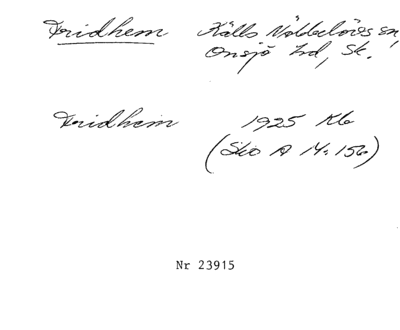 Fridhem Källs Nöbbelövs sn,
Onsjö hd, Sk.
Fridhem 1925 Kb
(SkO A 14:156)
Nr 23915